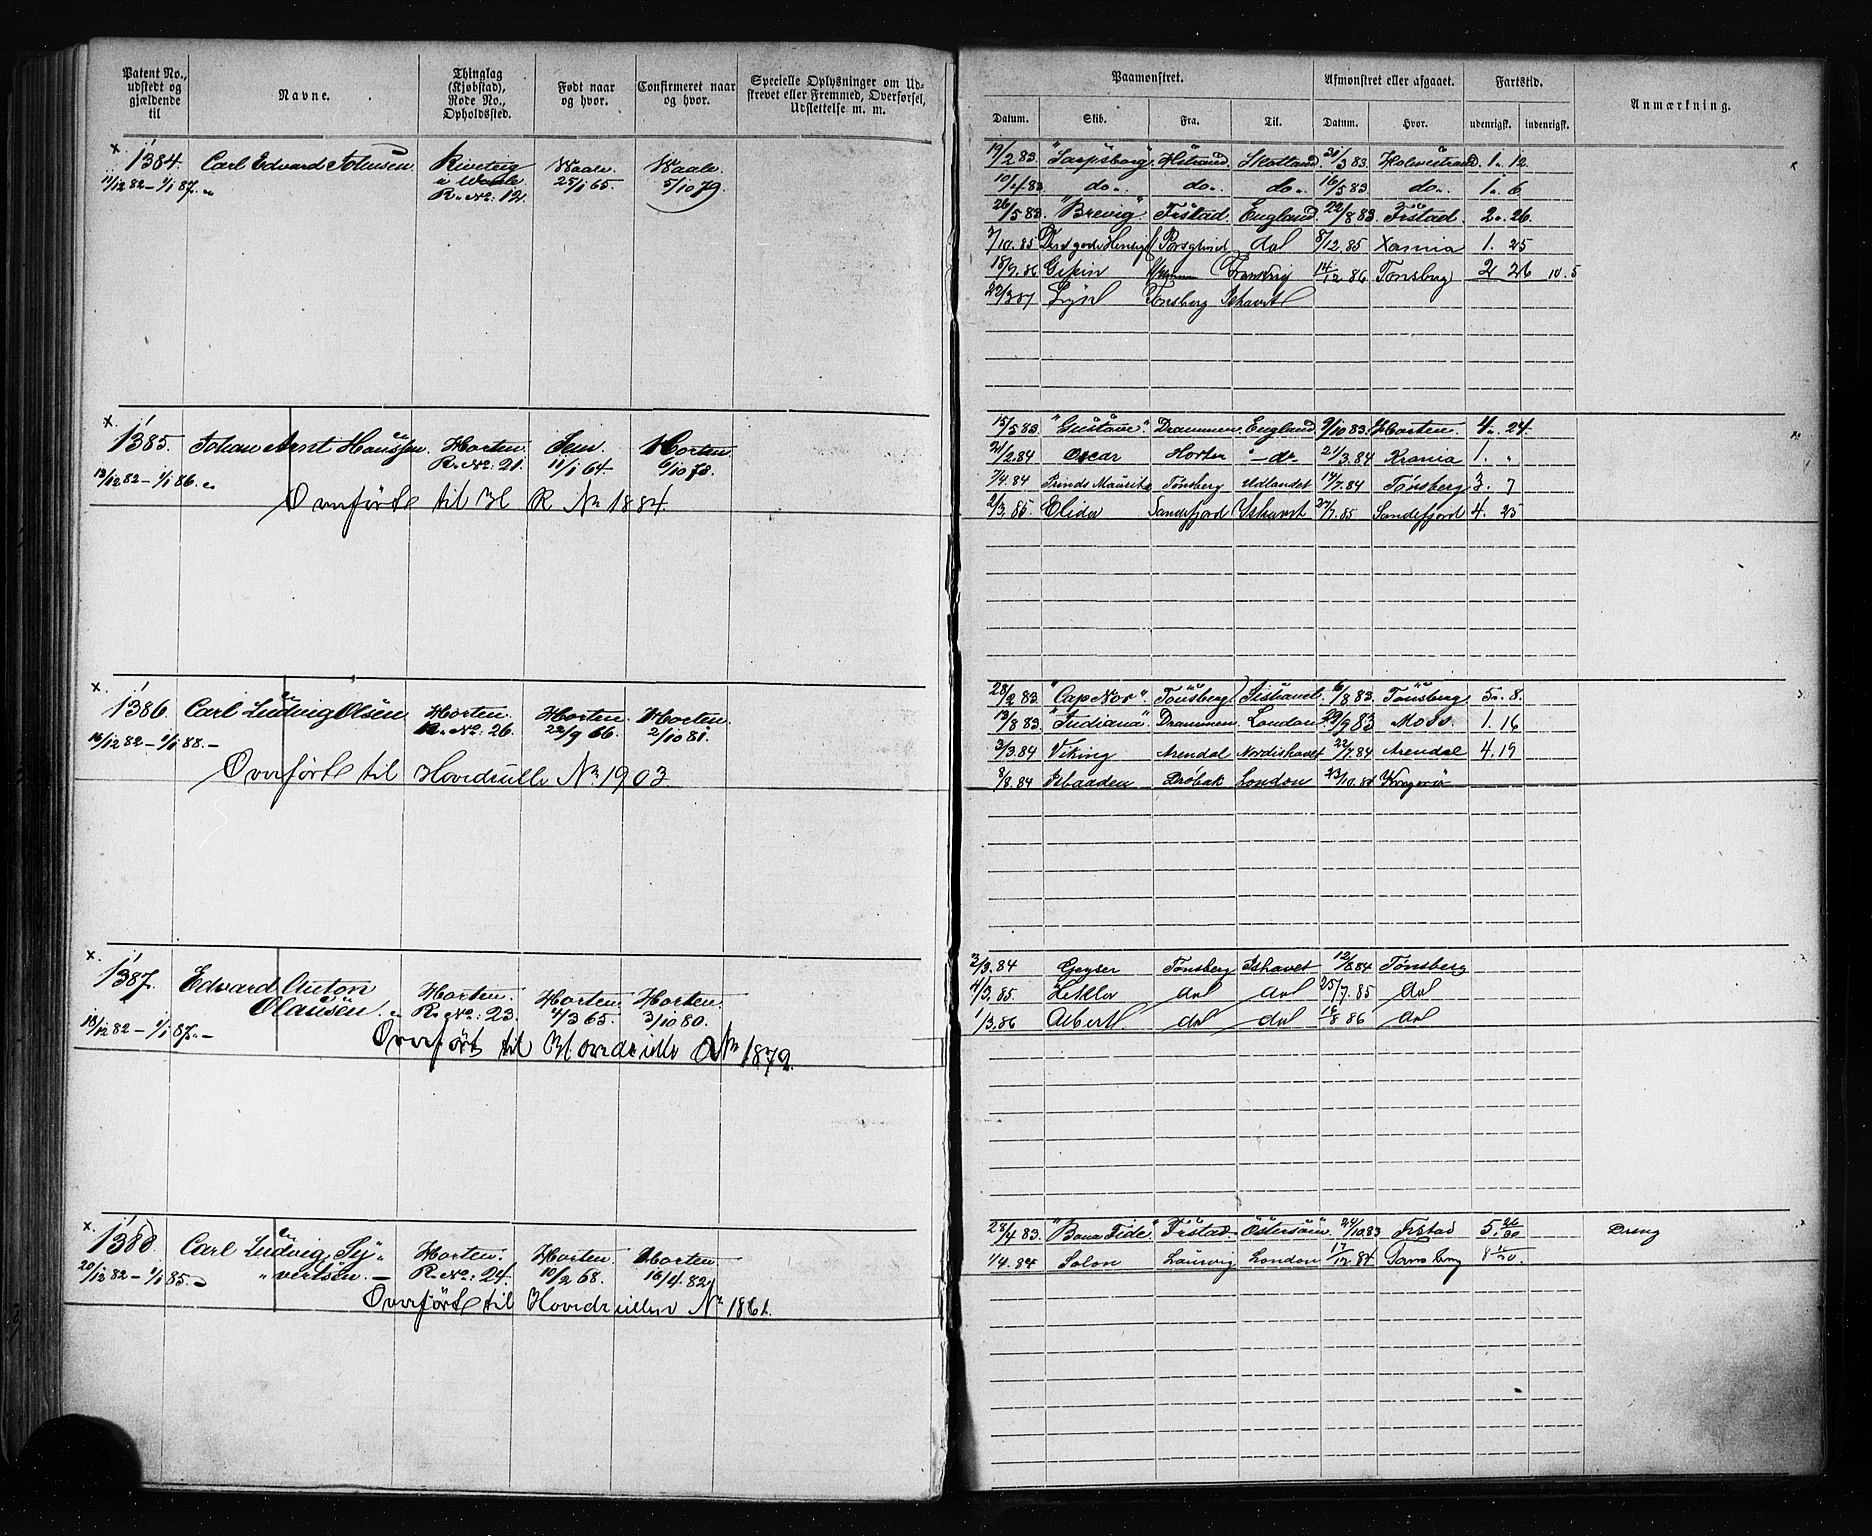 Patent No., udstedt og gjældende til
Navne.
Thinglag (Kjøbstad), Rode No., Opholdssted.
Født naar og hvor.
Confirmeret naar og hvor.
Specielle Oplysninger om Udstrevet eller Fremmed, Overførsel, Udslettelse m. m.
Paamønstret.
Afmønstret eller afgaaet.
Fartstid.
Anmærkning.
Datum. Skib. Fra. Til. Datum. Hvor. udenrigsk. indenrigsk.
x 1384. Carl Edvard
Waale Waale
11/12 82 - 1/1 87. 25/1 65. 5/10 79
R. No: 12.
19/2 83. "Sarpsborg" Skotland 31/3 83. Holmestrand 1. 12.
10/4 83 do do. do. 16/5 83. do. 1. 6.
26/5 83. "Brevig" Frstad. England. 22/8 83. Frstad. 2. 26.
/10. 85 8/12. 85 Xania 1. 25
18/9. 86 14/12 86 Tønsberg 2 26 10. 5
Tønsberg Ishavet
x 1385. Johan Arnt Horten. Horten
R. No: 21. 11/1 64. 6/10 78.
12/12 82 - 1/1 86.
Overført til H R No 1884.
15/5 83. "Gustave". Drammen. England. 9/10 83. Horten. 4. 24.
21/2. 84 Oscar Horten 21/3. 84 Krania 1. "
7/4. 84 Prinds Mauritz Tønsberg Udlandet 14/7. 84 Tønsberg 3. 7
2/3. 85 Elida Sandefjord Ishavet 27/7. 85 Sandefjord 4. 25
x 1386. Carl Ludvig Olsen Horten. Horten. Horten.
16/12 82 - 1/1 88. - R. No: 26. 22/9 66. 2/10 81.
Overført til Hovedrulle No 1903.
28/2 83. "Cap Nor" Tønsberg 6/8 83. Tønsberg. 5. 8.
13/8 83. "Indiana" Drammen. London 29/9 83 Moss. 1. 16
3/3. 84 Viking Arendal Nordishavet 22/7. 84 Arendal 4. 19
8/8. 84 Isbaaden Drøbak London 23/10. 84
x 1387. Edvard Anton
Olausen. Horten. Horten. Horten.
13/12 82 - 1/1 87. - R. No: 23. 4/3 65. 3/10 80.
Overført til Hovedrulle No 1879.
2/3. 84 Geyser Tønsberg Ishavet 12/8. 84 Tønsberg
4/3. 85. Hekla do do 25/7. 85 do
1/3. 86 Albert do do 86 do
x. 1388. Carl Ludvig Sy-
vertsen. - Horten. Horten Horten
20/12 82 - 1/1 85. - R. No: 24. 10/2 68. 16/4 82.
Overført til Hovedrullen No 1861.
28/4 83. "Bona Fide" Frstad. Østersøen. 24/10. 83 Frstad 5. 26/30 Dreng
1/4. 84 Solon Laurvig London 84 Tønsberg 8